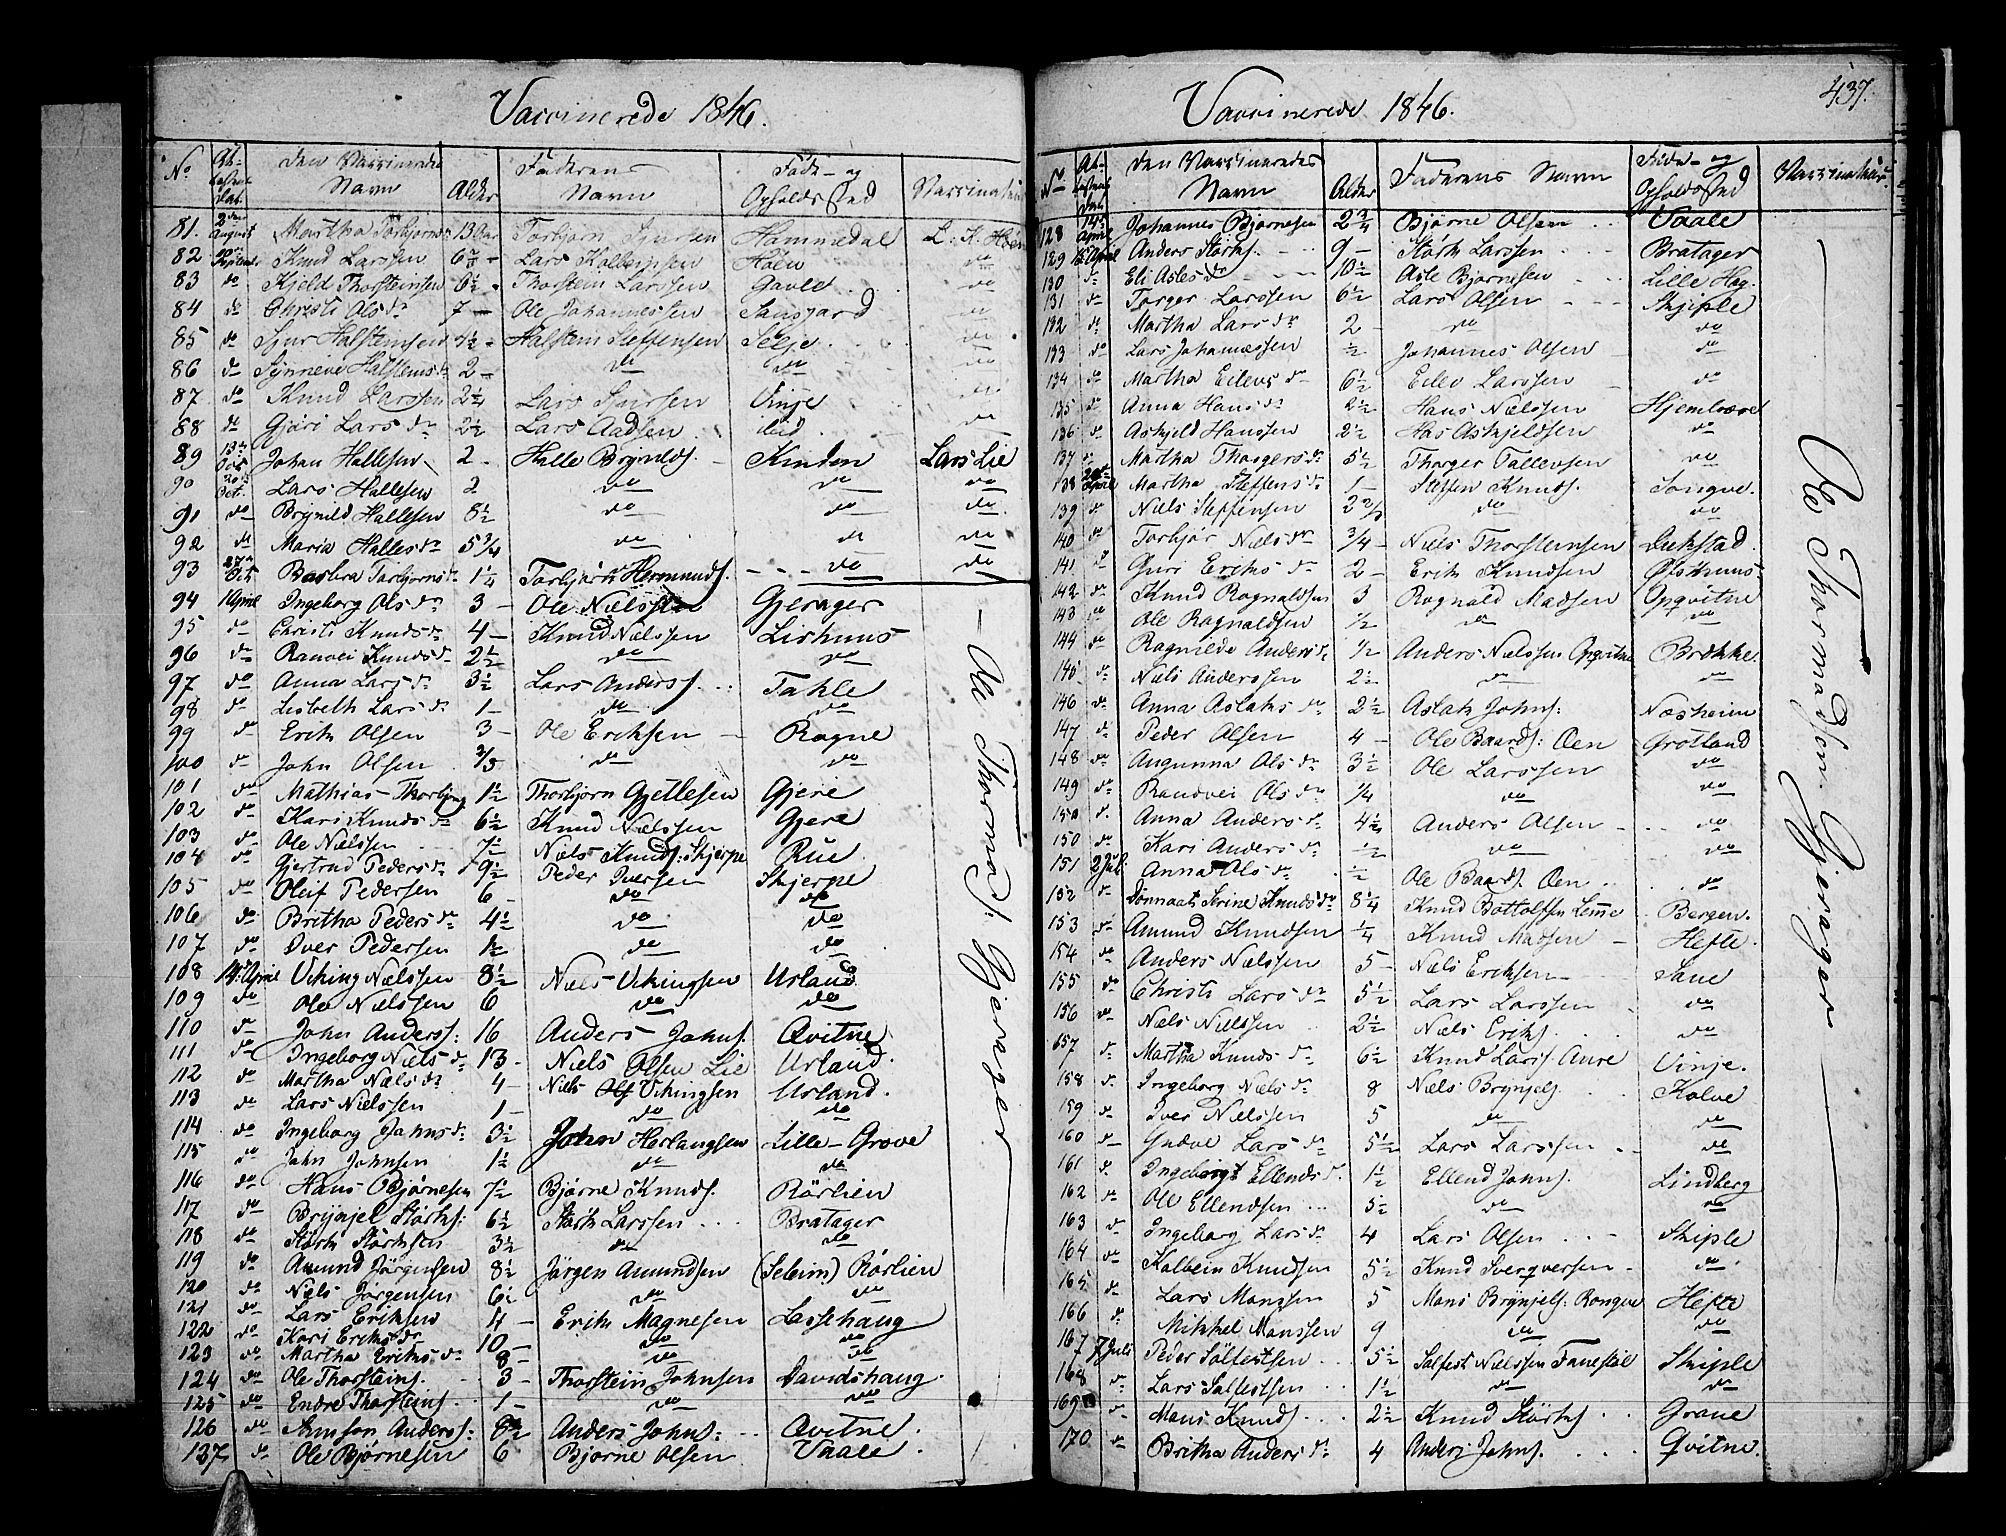 Vaccinerede 1846.
No Attestens Dat. Den Vaccineredes Navn Alder Faderens Navn Føde- og Opholdssted Vaccinateur
81. 2den August Martha Torbjørnsdr 13 Aar Torbjørn Sjursen Hamredal L. K. Høen
82 Knud Larssen 6 Lars Kolbeinsen Høen do
83 do Kjeld Thorsteinsen 6½ Thorstein Larssen Gavle do
84 do Christi Olsdr 7 — Ole Johannessen do
85 do Sjur Halsteinsen 4½ Halstein Steffensen Selje do
86 do Synneve Halsteinsdr 2 — do do do
87 do Knud Larssen 2¼ Lars Sjursen Vinje do
88 do Gjøri Larsdr 2½ Lars Aadsen do
89 13de Oct Johan Hallesen 2 — Halle Brynilds. — Kinden Lars Lie
90 20de Oct. Lars Hallesen 2 do do do
91 do Brynild Hallesen 8½ do do do
92 do Maria Hallesdr 5¾ do do do
93 27de Oct Barbra Torbjørnsdr 1¼ Torbjørn Hermunds. do do
94 1 April Ingeborg Olsdr 3 — Ole Nielssen Gjerager — Ole Thormods: Gjerager —
95 do Christi Knudsdr 4 — Knud Nielssen Lishuus
96 do Ranvei Knudsdr 2½ do do
97 do Anna Larsdr 3½ Lars Anders. Takle
98 do Lisbeth Larsdr 1 — do do
99 do Erik Olsen 3 — Ole Eriksen Rogne
100 do John Olsen ⅔ do do
101 do Mathias Thorbjøns 1½ Thorbjørn Gjetlesen Gjere
102 do Kari Knudsdr 6½ Knud Nielssen Gjere
103 do Ole Nielssen 7½ Niels Knuds: Skjerpe Rue
104 do Gjertrud Pedersdr 9½ Peder Iversen Skjerpe
105 do Oleif Pedersen 6 — do do
106 do Britha Pedersdr 4½ do do
107 do Iver Pedersen 1½ do do
108 14 April Viking Nielssen 8½ Niels Vikingsen Urland
109 do Ole Nielssen 6 do do
110 do John Anderss: 16 Anders Johns. Qvitne
111 do Ingeborg Nielsdr 13 — Niels Olsen Lie Urland.
112 do Martha Nielsdr 4 — Niels Vikingsen Urland.
113 do Lars Nielssen 1 — do do
114 do Ingeborg Johnsdr 3½ John Herlaugsen Lille-Grove
115 do John Johnsen 1½ do do
116 do Hans Bjørnesen 7½ Bjørne Knuds. Rørlien
117 do Brynjel Størks: 6½ Størk Larssen Bratager
118 do Størk Størksen 3½ do do
119 do Amund Jørgensen 8½ Jørgen Amundsen (Seleim) Rørlien
120 do Niels Jørgensen 6½ do do
121 do Lars Eriksen 4 — Erik Magnesen Lassehaug
122 do Kari Eriksdr 10 — do do
123 do Martha Eriksdr 8 — do do
124 do Ole Thorsteins. 3 — Thorstein Johnsen Davidshaug.
125 do Endre Thorsteins. 1 — do do
126 do Simson Anderss: 8½ Anders Johns: Qvitne.
127 do Ole Bjørnesen 6 Bjørne Olsen Vaale.
Vaccinerede 1846. 437.
No Attestens Dat Den Vaccineredes Navn Alder Faderens Navn Føde- og Opholdssted Vaccinateur
128 14de April Johannes Bjørnesen 2¾ Bjørne Olsen Vaale Ole Thormodsen Gjerager
129 15 April Anders Størks. 9 — Størk Larssen Bratager
130 do Eli Aslesdr 10½ Asle Bjørnesen Lille Hag.
131 do Torger Larssen 6½ Lars Olsen Skjiple
132 do Martha Larsdr 2 — do do
133 do Lars Johannessen ½ Johannes Olsen do
134 do Martha Eilevsdr 6½ Eilev Larssen do
135 do Anna Hansdr 2½ Hans Nielssen
136 do Askjeld Hanssen 2½ Has Askjeldsen do
137 do Martha Thorgersdr 5½ Thorger Tallevsen do
138 20de April Martha Steffensdr 1 — Steffen Knuds. Songve.
139 do Niels Steffensen 2⅔ do do
140 do Torbjør Nielsdr ¾ — Niels Thorsteinsen Dukstad
141 do Guri Eriksdr 2 — Erik Knudsen
142 do Knud Rognaldsen 3 Rognald Madsen Opqvitne
143 do Ole Rognaldsen ½ do do
144 do Ragnilde Andersdr ½ Anders Nielssen Opqvitne Brekke.
145 do Niels Anderssen 2½ do do
146 do Anna Aslaksdr 2½ Aslak Johns: Næsheim
147 do Peder Olsen 4 — Ole Baards: Øen Grotland
148 do Augunna Olsdr 3½ Ole Larssen do
149 do Randvei Olsdr ¼ do do
150 do Anna Andersdr 4½ Anders Olsen do
150 do Kari Andersdr ½ do do
151 2 Juli Anna Olsdr ½ Ole Baards. Øen do
152 do Dønnaat Serine Knudsdr 8¼ Knud Bottolfsen Lemme Bergen.
153 do Amund Knudsen ¼ Knud Madsen — Hefte.
154 do Anders Nielssen 5 — Niels Eriksen Sane
155 do Christi Larsdr 5½ Lars Larssen do
156 do Niels Nielssen 2½ Niels Eriks. do
157 do Martha Knudsdr 6½ Knud Larss. Aure Vinje.
158 do Ingeborg Nielsdr 8 Niels Brynjels. Kolve
159 do Iver Nielssen 5 do do
160 do Gudve Larsdr 5½ Lars Larssen do
161 do Ingeborgt Ellendsdr. 1½ Ellend Johns. Lindberg
162 do Ole Ellendsen 5½ do do
163 do Ingeborg Larsdr 4 Lars Olsen Skiple
164 do Kolbein Knudsen 5½ Knud Sverqversen do
165 do Lars Monssen 5 Mons Brynjels: Rongve Hefte
166 do Mikkel Monssen 9 do do
167 7 Juli Peder Sølfestsen 5½ Sølfest Nielssen Fanestøl Skiple
168 do Lars Sølfestsen 1½ do do
169 do Mons Knuds. 2½ Knud Størks. Grove
170 do Britha Andersdr 4 Anders Johns. Qvitne.